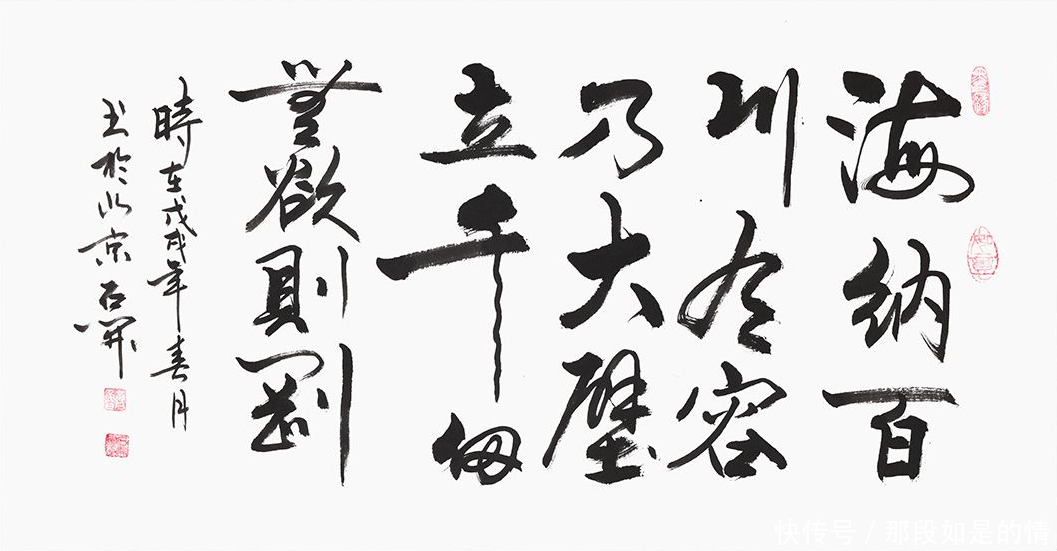 海納百
川有容
乃大壁
立千仞
無欲則剛
時在戊戌年春月
书於北京石開
快传号 / 那段如是的情